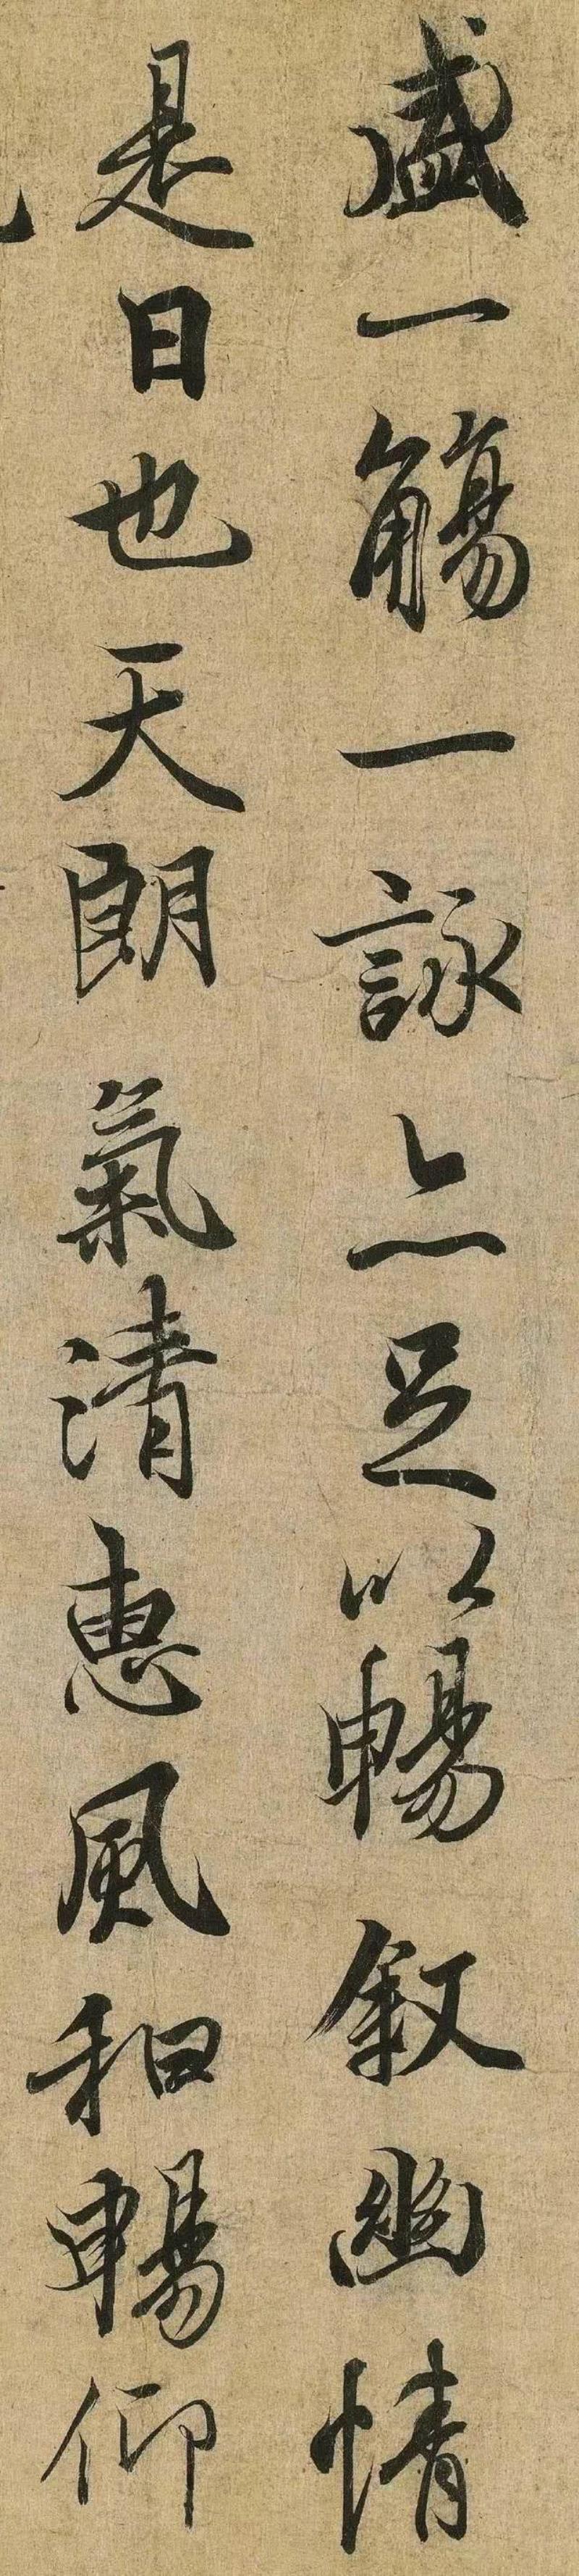 盛一觴一詠亦足以暢敘幽情
是日也天朗氣清惠風和暢仰